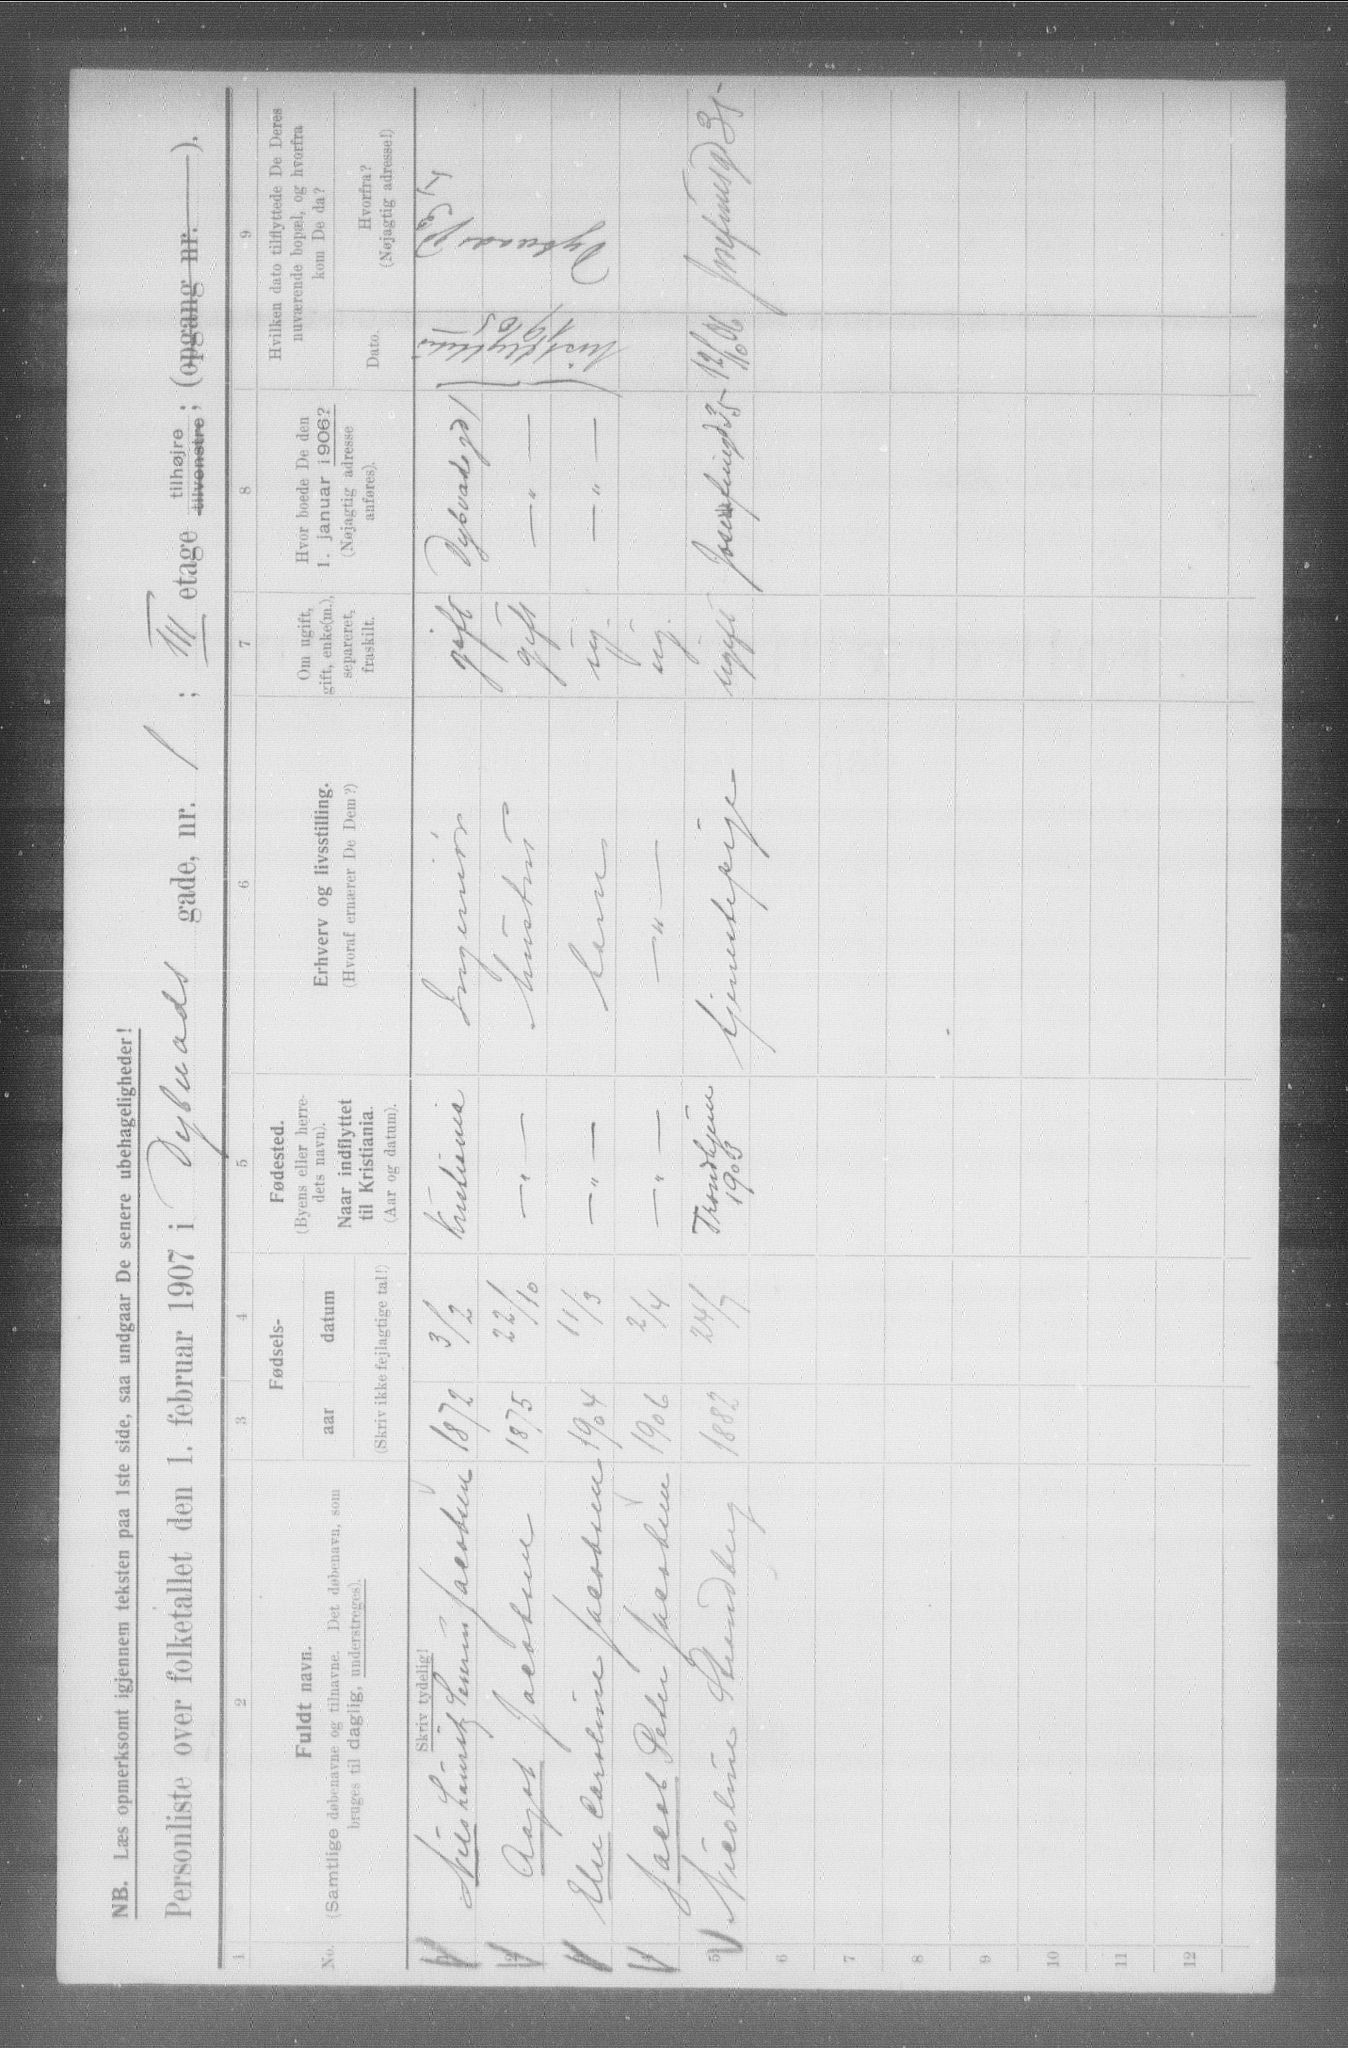 NB. Læs opmerksomt igjennem teksten paa 1ste side, saa undgaar De senere ubehageligheder!
Personliste over folketallet den 1. februar 1907 i Dybvads gade, nr. 1; III etage tilhøjre tilvenstre; (opgang nr. ).
1 2 3 4 5 6 7 8 9
No.
Fuldt navn.
(Samtlige døbenavne og tilnavne. Det døbenavn, som
bruges til daglig, understreges).
Fødsels-
aar datum
(Skriv ikke fejlagtige tal!)
Fødested.
(Byens eller herre-
dets navn).
Naar indflyttet
til Kristiania.
(Aar og datum).
Erhverv og livsstilling.
(Hvoraf ernærer De Dem?)
Om ugift,
gift, enke(m.),
separeret,
fraskilt.
Hvor boede De den
1. januar 1906?
(Nøjagtig adresse
anføres).
Hvilken dato tilflyttede De Deres
nuværende bopæl, og hvorfra
kom De da?
Dato.
Hvorfra?
(Nøjagtig adresse!)
Skriv tydelig!
Nils Lauritz Jacobsen 1872 3/2 Kristiania Ingeniör gift Dybvadsgd 1
2 Aagot Jacobsen 1875 22/10 — " — hustru gift — " —
1905
Else Caroline Jacobsen 1904 11/3 — " — barn ug. — " —
Jacob Peter Jacobsen 1906 2/4 — " — — " — ug.
5 Nicoline Strandberg 1882 24/7 Trondhjem 1903 tjenestepige ugift Josefinegd 35 12/10 06 Josefinesgd 35
6
7
8
9
10
11
12